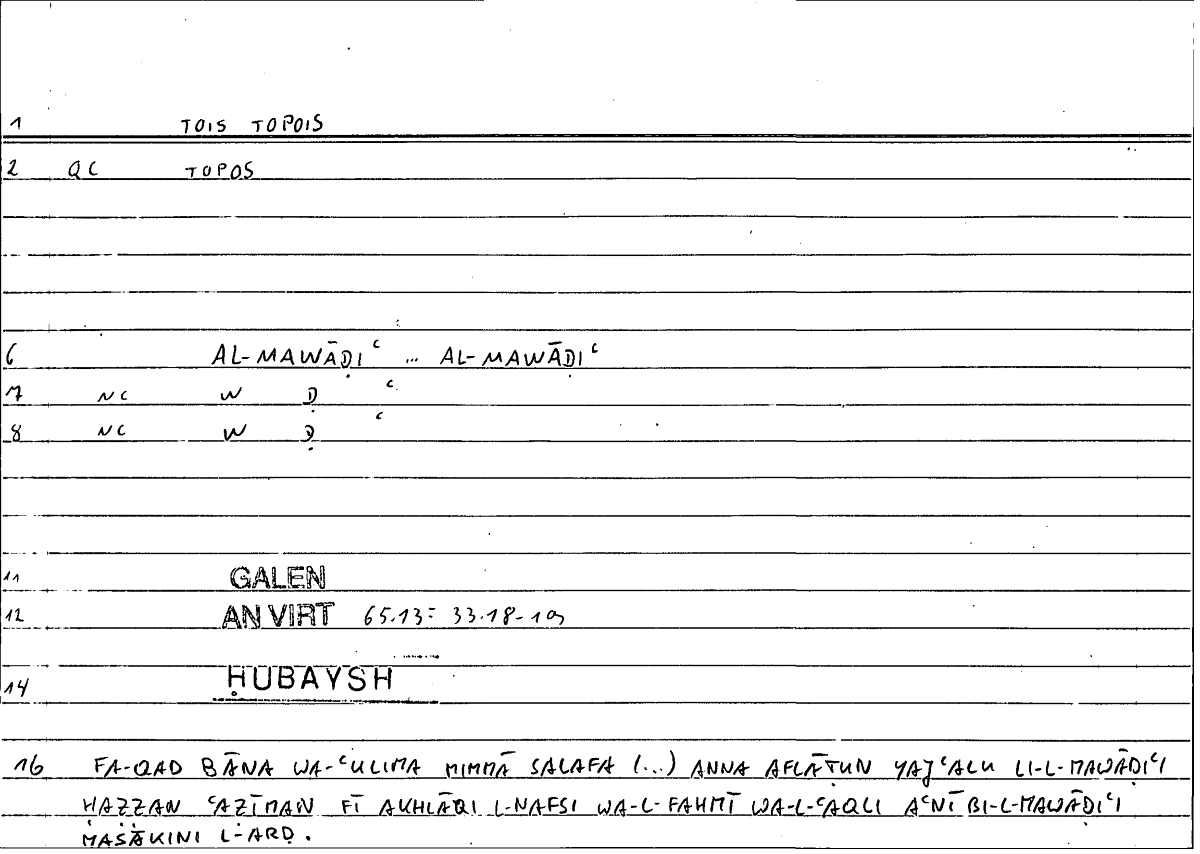 1 TOIS TOPOIS
2 QC TOPOS
6 AL-MAWĀḌIʿ ... AL-MAWĀḌIʿ
7 NC W Ḍ ʿ
8 NC W Ḍ ʿ
11 GALEN
12 AN VIRT 65.13 = 33.18-19
14 ḤUBAYSH
16 FA-QAD BĀNA WA-ʿULIMA MIMMĀ SALAFA (...) ANNA AFLĀṬUN YAJʿALU LI-L-MAWĀḌIʿI
ḤAẒẒAN ʿAẒĪMAN FĪ AKHLĀQI L-NAFSI WA-L-FAHMĪ WA-L-ʿAQLI AʿNĪ BI-L-MAWĀḌIʿI
MASĀKINI L-ARḌ.